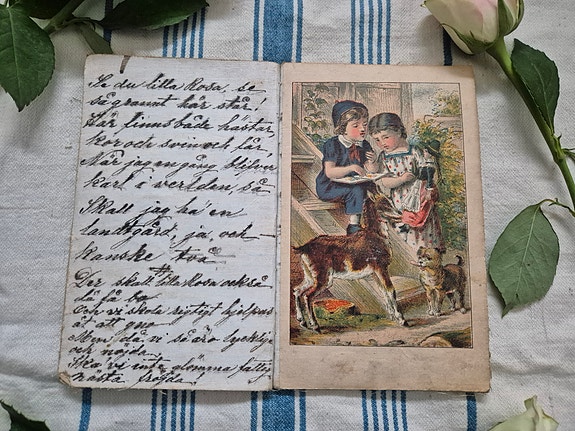 Se du lilla Rosa, se
så grannt här står!
Här finns både hästar,
kor och svin och får!
När jag en gång blifver
karl i verlden, så
Skall jag ha' en
lanttgård, ja, och
kanske två
Der skall lilla Rosa också
då få bo
Och vi skola rigtigt hjelpas
åt att gno
Men, då vi så äro lycklige
och nöjda
Ska vi inte glömma
nästa fröjda.